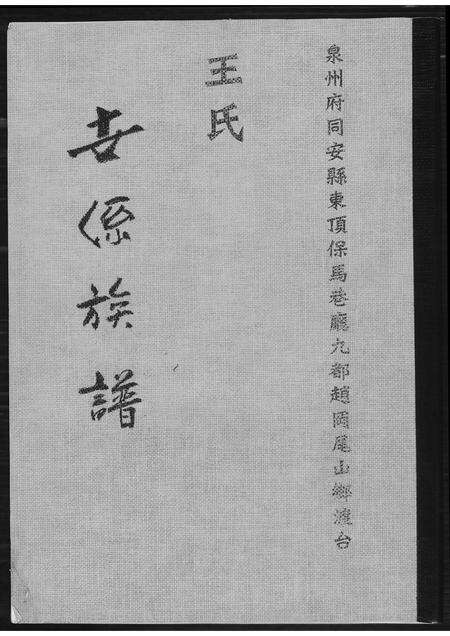 泉州府同安縣東頂保馬巷廳九都趙岡尾山鄉渡台
王氏
世係族譜